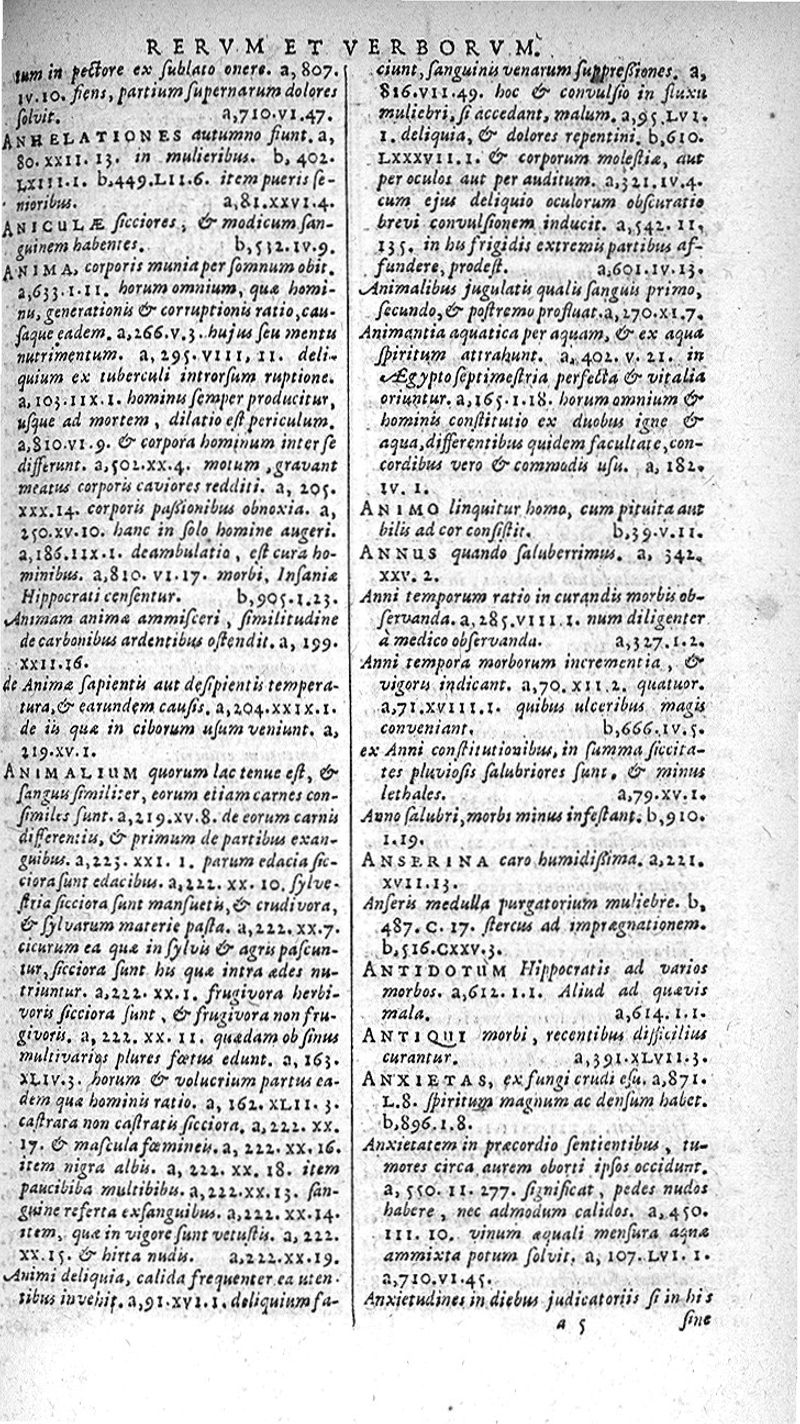 RERVM ET VERBORVM.
tum in pectore ex sublato onere. a, 807.
IV. 10. fiens, partium supernarum dolores
solvit. a, 710. VI. 47.
ANHELATIONES autumno fiunt. a,
80. XXII. 13. in mulieribus. b, 402.
LXIII. I. b, 449. LII. 6. item pueris se-
nioribus. a, 81. XXVI. 4.
ANICULÆ sicciores, & modicum san-
guinem habentes. b, 532. IV. 9.
ANIMA, corporis munia per somnum obit.
a, 633. I. II. horum omnium, quæ homi-
nis, generationis & corruptionis ratio, cau-
saque eadem. a, 266. V. 3. hujus seu mentis
nutrimentum. a, 295. VIII, II. deli-
quium ex tuberculi introrsum ruptione.
a, 103. IIX. I. hominis semper producitur,
usque ad mortem, dilatio est periculum.
a, 810. VI. 9. & corpora hominum inter se
differunt. a, 502. XX. 4. motum, gravant
meatus corporis caviores redditi. a, 205.
XXX. 14. corporis passionibus obnoxia. a,
250. XV. 10. hanc in solo homine augeri.
a, 186. IIX. I. deambulatio, est cura ho-
minibus. a, 810. VI. 17. morbi, Insaniæ
Hippocrati censentur. b, 905. I. 23.
Animam animæ ammisceri, similitudine
de carbonibus ardentibus ostendit. a, 199.
XXII. 16.
de Animæ sapientis aut desipientis tempera-
tura, & earundem causis. a, 204. XXIX. I.
de iis quæ in ciborum usum veniunt. a,
219. XV. I.
ANIMALIUM quorum lac tenue est, &
sanguis similiter, eorum etiam carnes con-
similes sunt. a, 219. XV. 8. de eorum carnis
differentiis, & primum de partibus exan-
guibus. a, 223. XXI. I. parum edacia sic-
ciora sunt edacibus. a, 222. XX. 10. sylve-
stria sicciora sunt mansuetis, & crudivora,
& sylvarum materie pasta. a, 222. XX. 7.
cicurum ea quæ in sylvis & agris pascun-
tur, sicciora sunt his quæ intra ædes nu-
triuntur. a, 222. XX. I. frugivora herbi-
voris sicciora sunt, & frugivora non fru-
givoris. a, 222. XX. II. quædam ob sinus
multivarios plures fœtus edunt. a, 163.
XLIV. 3. horum & volucrium partus ea-
dem quæ hominis ratio. a, 162. XLII. 3.
castrata non castratis sicciora. a, 222. XX.
17. & mascula fœmineis. a, 222. XX. 16.
item nigra albis. a, 222. XX. 18. item
paucibiba multibibis. a, 222. XX. 13. san-
guine referta exsanguibus. a, 222. XX. 14.
item, quæ in vigore sunt vetustis. a, 222.
XX. 15. & hirta nudis. a, 222. XX. 19.
Animi deliquia, calida frequenter ea uten-
tibus invehit. a, 91. XVI. I. deliquium fa-
ciunt, sanguinis venarum suppressiones. a,
816. VII. 49. hoc & convulsio in fluxu
muliebri, si accedant, malum. a, 95. LVI.
I. deliquia, & dolores repentini. b, 610.
LXXXVII. I. & corporum molestiæ, aut
per oculos aut per auditum. a, 321. IV. 4.
cum ejus deliquio oculorum obscuratio
brevi convulsionem inducit. a, 542. II.
135. in his frigidis extremis partibus af-
fundere, prodest. a, 601. IV. 13.
Animalibus jugulatis qualis sanguis primo,
secundo, & postremo profluat. a, 270. XI. 7.
Animantia aquatica per aquam, & ex aqua
spiritum attrahunt. a, 402. V. 21. in
Ægypto septimestria perfecta & vitalia
oriuntur. a, 165. I. 18. horum omnium &
hominis constitutio ex duobus igne &
aqua, differentibus quidem facultate, con-
cordibus vero & commodis usu. a, 182.
IV. I.
ANIMO linquitur homo, cum pituita aut
bilis ad cor consistit. b, 39. V. II.
ANNUS quando saluberrimus. a, 342.
XXV. 2.
Anni temporum ratio in curandis morbis ob-
servanda. a, 285. VIII. I. num diligenter
à medico observanda. a, 327. I. 2.
Anni tempora morborum incrementia, &
vigoris indicant. a, 70. XII. 2. quatuor.
a, 71. XVIII. I. quibus ulceribus magis
conveniant. b, 666. IV. 5.
ex Anni constitutionibus, in summa siccita-
tes pluviosis salubriores sunt, & minus
lethales. a, 79. XV. I.
Anno salubri, morbi minus infestant. b, 910.
I. 19.
ANSERINA caro humidissima. a, 221.
XVII. 13.
Anseris medulla purgatorium muliebre. b,
487. C. 17. stercus ad imprægnationem.
b, 516. CXXV. 3.
ANTIDOTUM Hippocratis ad varios
morbos. a, 612. I. I. Aliud ad quævis
mala. a, 614. I. I.
ANTIQUI morbi, recentibus difficilius
curantur. a, 391. XLVII. 3.
ANXIETAS, ex fungi crudi esu. a, 871.
L. 8. spiritum magnum ac densum habet.
b, 896. I. 8.
Anxietatem in præcordio sentientibus, tu-
mores circa aurem oborti ipsos occidunt.
a, 550. II. 277. significat, pedes nudos
habere, nec admodum calidos. a, 450.
III. 10. vinum æquali mensura aquæ
ammixta potum solvit. a, 107. LVI. I.
a, 710. VI. 45.
Anxietudines in diebus judicatoriis si in his
a 5 sine